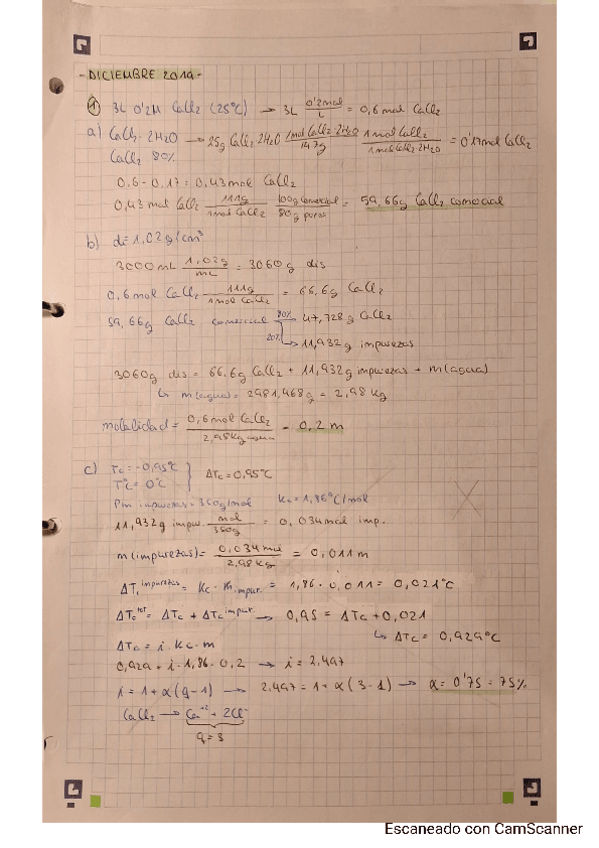 -DICIEMBRE 2019-
① 3L 0'2M CaCl2 (25°C) → 3L 0'2mol/L = 0,6 mol CaCl2
a) CaCl2·2H2O → 25g CaCl2·2H2O 1mol CaCl2·2H2O/147g 1mol CaCl2/1mol CaCl2·2H2O = 0'17mol CaCl2
CaCl2 80%
0,6 - 0,17 = 0,43 mol CaCl2
0,43 mol CaCl2 111g/1mol CaCl2 100g comercial/80g puros = 59,66g CaCl2 comercial
b) d = 1,02 g/cm³
3000 mL 1,02g/mL = 3060 g dis
0,6 mol CaCl2 111g/1mol CaCl2 = 66,6g CaCl2
59,66g CaCl2 comercial 80% → 47,728g CaCl2
20% → 11,932g impurezas
3060g dis = 66,6g CaCl2 + 11,932g impurezas + m(agua)
↳ m(agua) = 2981,468g = 2,98 kg
molalidad = 0,6 mol CaCl2/2,98kg agua = 0,2 m
c) Tc = -0,95°C
T°c = 0°C } ΔTc = 0,95°C
Pm impurezas = 350g/mol Kc = 1,86°C/mol
11,932g impu. mol/350g = 0,034mol imp.
m(impurezas) = 0,034mol/2,98kg = 0,011 m
ΔTc impurezas = Kc · m impur. = 1,86 · 0,011 = 0,021°C
ΔTc tot = ΔTc + ΔTc impur. → 0,95 = ΔTc + 0,021
↳ ΔTc = 0,929°C
ΔTc = i · Kc · m
0,929 = i · 1,86 · 0,2 → i = 2,497
i = 1 + α(q-1) → 2,497 = 1 + α(3-1) → α = 0'75 = 75%
CaCl2 → Ca+2 + 2Cl-
q = 3
Escaneado con CamScanner